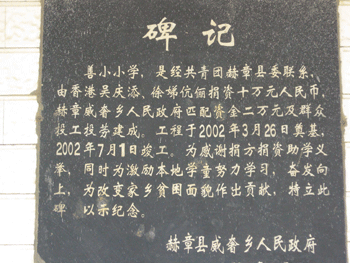 碑记
善小小学，是经共青团赫章县委联系，
由香港吴庆添、徐娣伉俪捐资十万元人民币，
赫章威奢乡人民政府匹配资金二万元及群众
投工投劳建成。工程于2002年3月26日奠基，
2002年7月1日竣工。为感谢捐方捐资助学义
举，同时为激励本地学童努力学习，奋发向
上，为改变家乡贫困面貌作出贡献，特立此
碑 以示纪念。
赫章县威奢乡人民政府